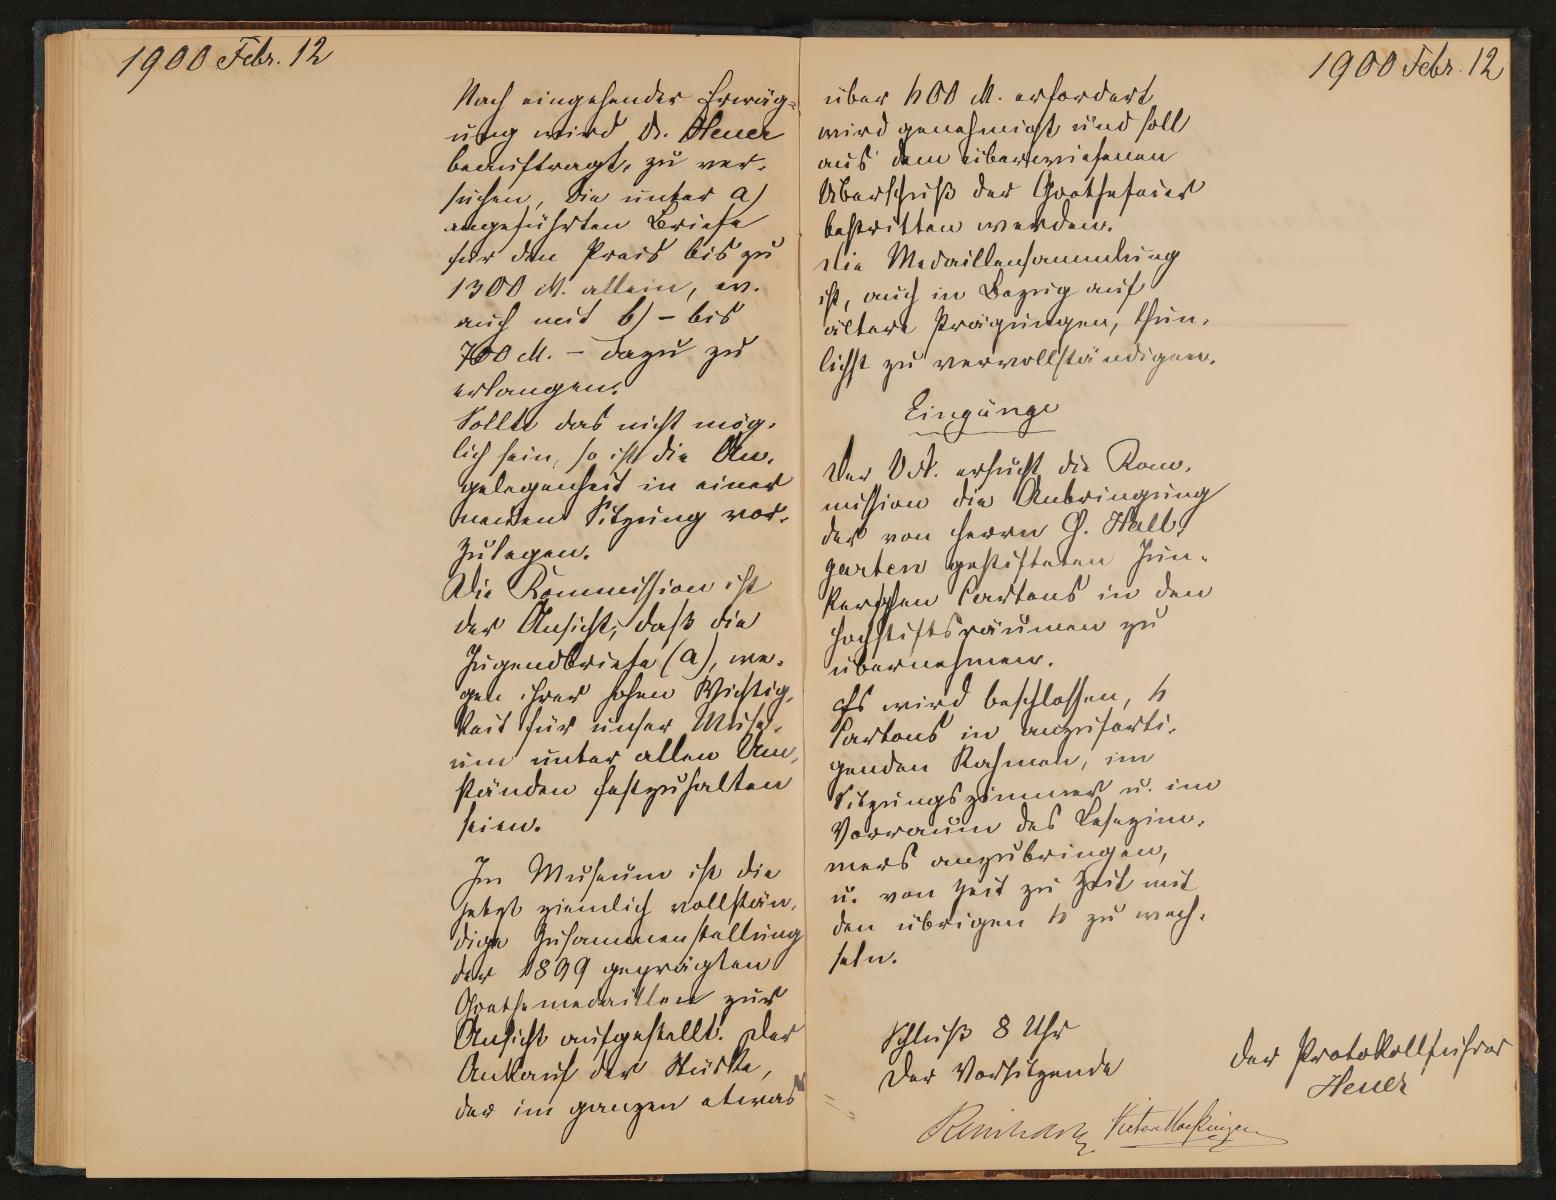 1900 Febr. 12
Nach eingehender Erwäg-
ung wird Dr. Heuer
beauftragt, zu ver-
suchen, die unter a)
angeführten Briefe
für den Preis bis zu
1300 M. allein, ev.
auch mit b) – bis
700 M. – dazu zu
erlangen.
Sollte das nicht mög-
lich sein, so ist die An-
gelegenheit in einer
neuen Sitzung vor-
zulegen.
Die Kommission ist
der Ansicht, daß die
Jugendbriefe (a), we-
gen ihrer hohen Wichtig-
keit für unser Muse-
um unter allen Um-
ständen festzuhalten
seien.
Im Museum ist die
jetzt ziemlich vollstän-
dige Zusammenstellung
der 1899 geprägten
Goethemedaillen zur
Ansicht aufgestellt. Der
Ankauf der Stücke,
der im ganzen etwas
1900 Febr. 12
über 400 M. erfordert
wird genehmigt und soll
aus dem überwiesenen
Überschuß der Goethefeier
bestritten werden.
Die Medaillensammlung
ist, auch in Bezug auf
ältere Prägungen, thun-
lichst zu vervollständigen.
Eingänge
Der V.A. ersucht die Kom-
mission die Anbringung
der von Herrn C. Hall-
garten gestifteten Jun-
kerschen Cartons in den
Hochstiftsräumen zu
übernehmen.
Es wird beschlossen, 4
Cartons in anzuferti-
genden Rahmen, im
Sitzungszimmer u. im
Vorraum des Lesezim-
mers anzubringen,
u. von Zeit zu Zeit mit
den übrigen 4 zu wech-
seln.
Schluß 8 Uhr
Der Vorsitzende
Der Protokollführer
Heuer